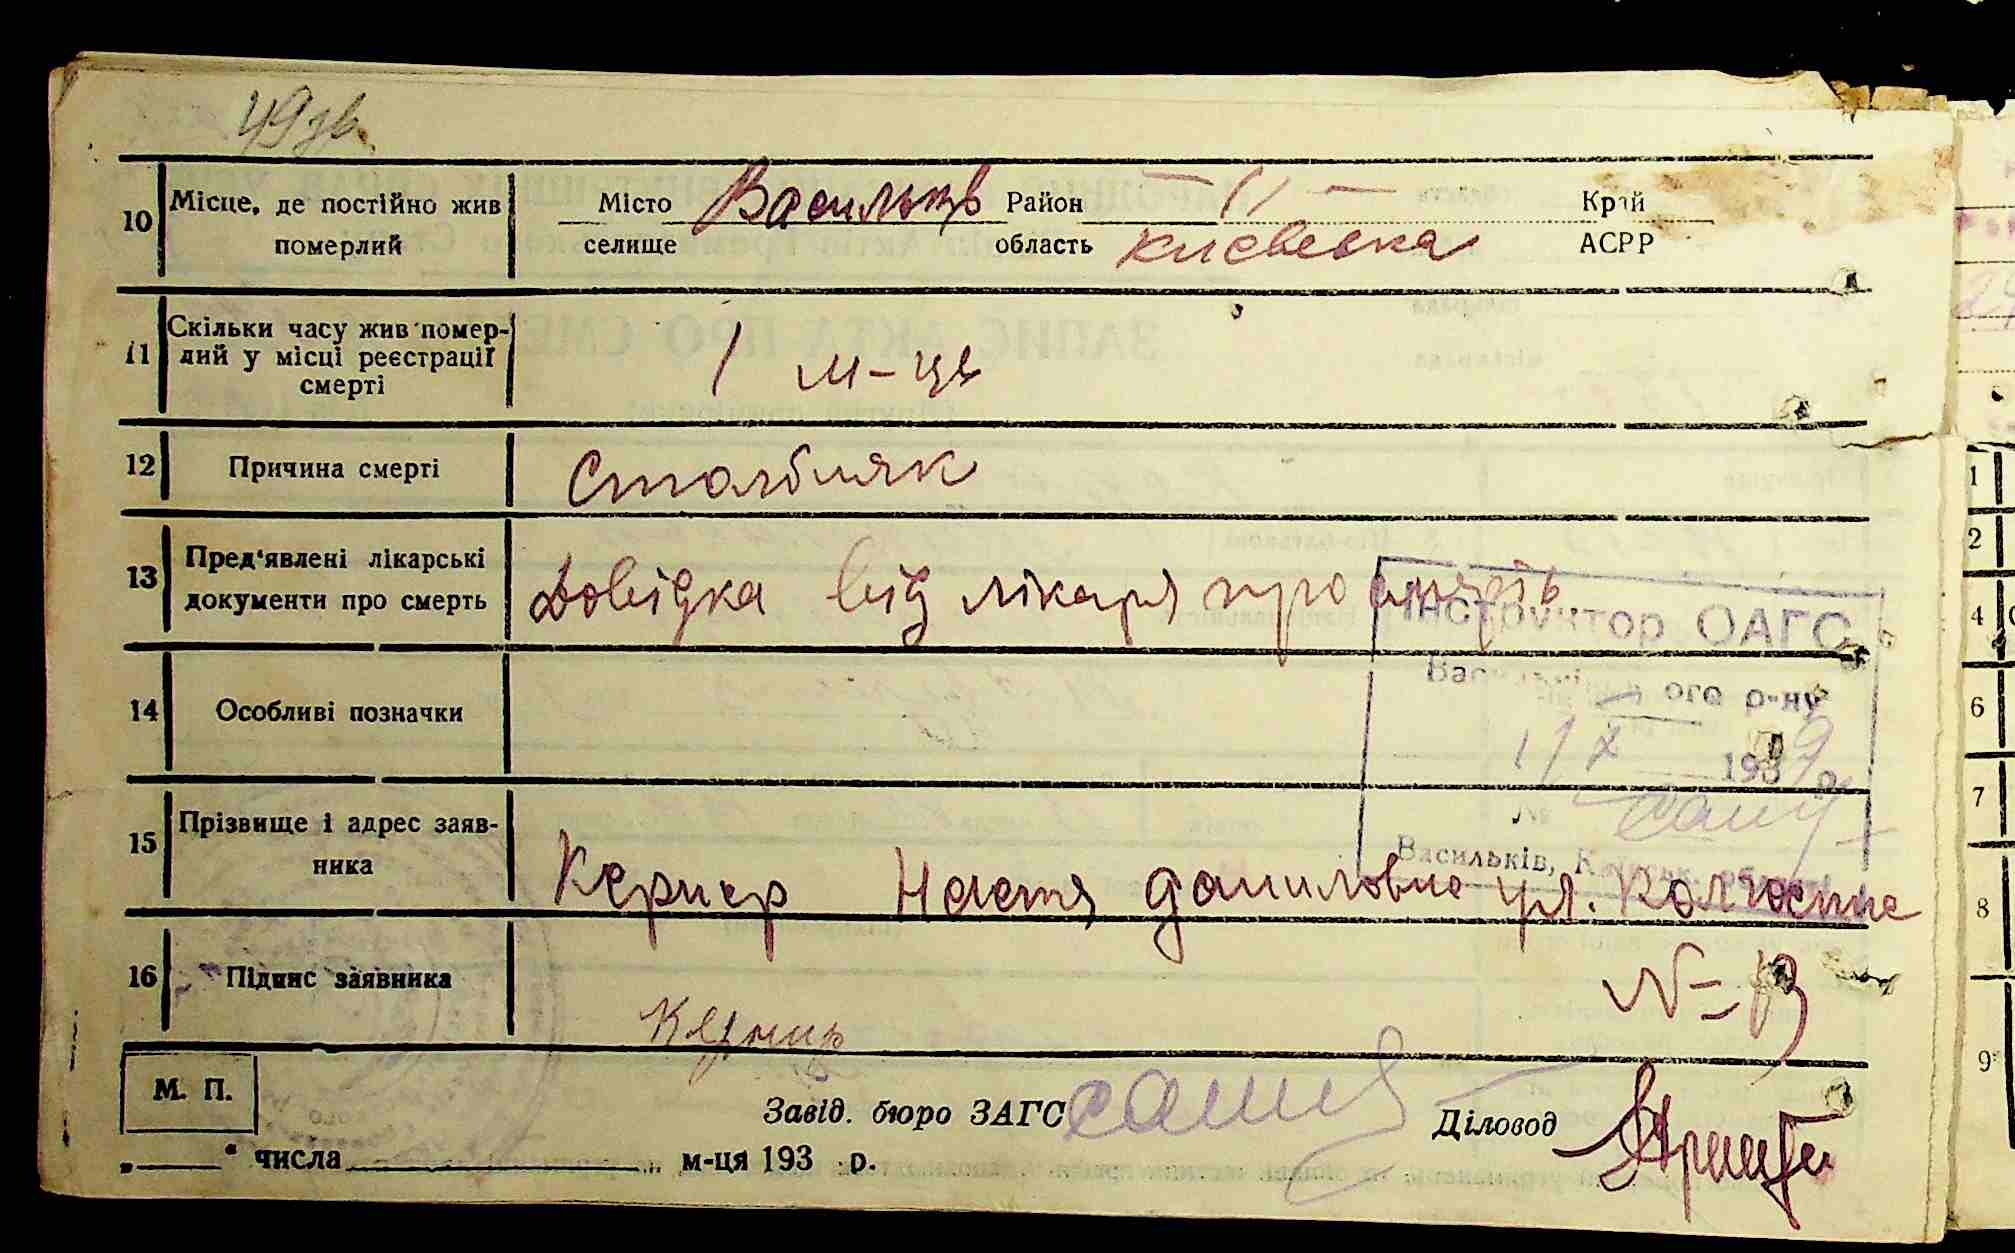 49зв.
10 Місце, де постійно жив померлий Місто селище Васильків Район — // — область Києвська Край АСРР
11 Скільки часу жив померлий у місці реєстрації смерті 1 м-ць
12 Причина смерті Столбняк
13 Пред'явлені лікарські документи про смерть Довідка від лікаря про смерть
Інструктор ОАГС
ого р-ну
1/X 1939 р.
№
Васильків,
14 Особливі позначки
15 Прізвище і адрес заявника Кернер Настя Даниловна ул.
№ 13
16 Підпис заявника Кернер
М. П.
Завід. бюро ЗАГС Діловод
„ “ числа м-ця 193 р.
1
2
4
6
7
8
9